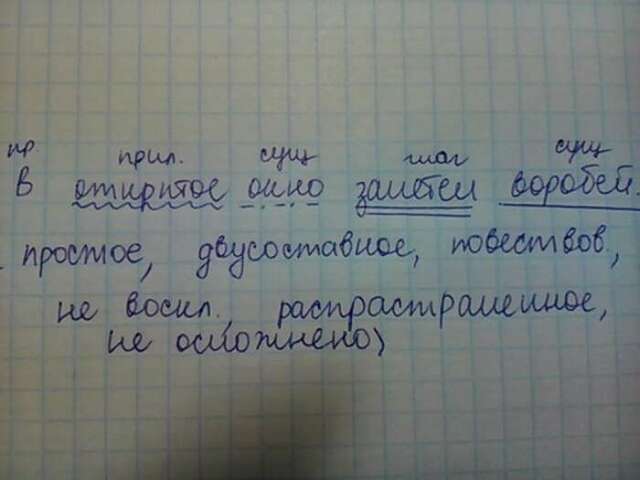 пр. прил. сущ глаг сущ
В открытое окно залетел воробей.
простое, двусоставное, повествов,
не воскл., распрастраненное,
не осложнено)